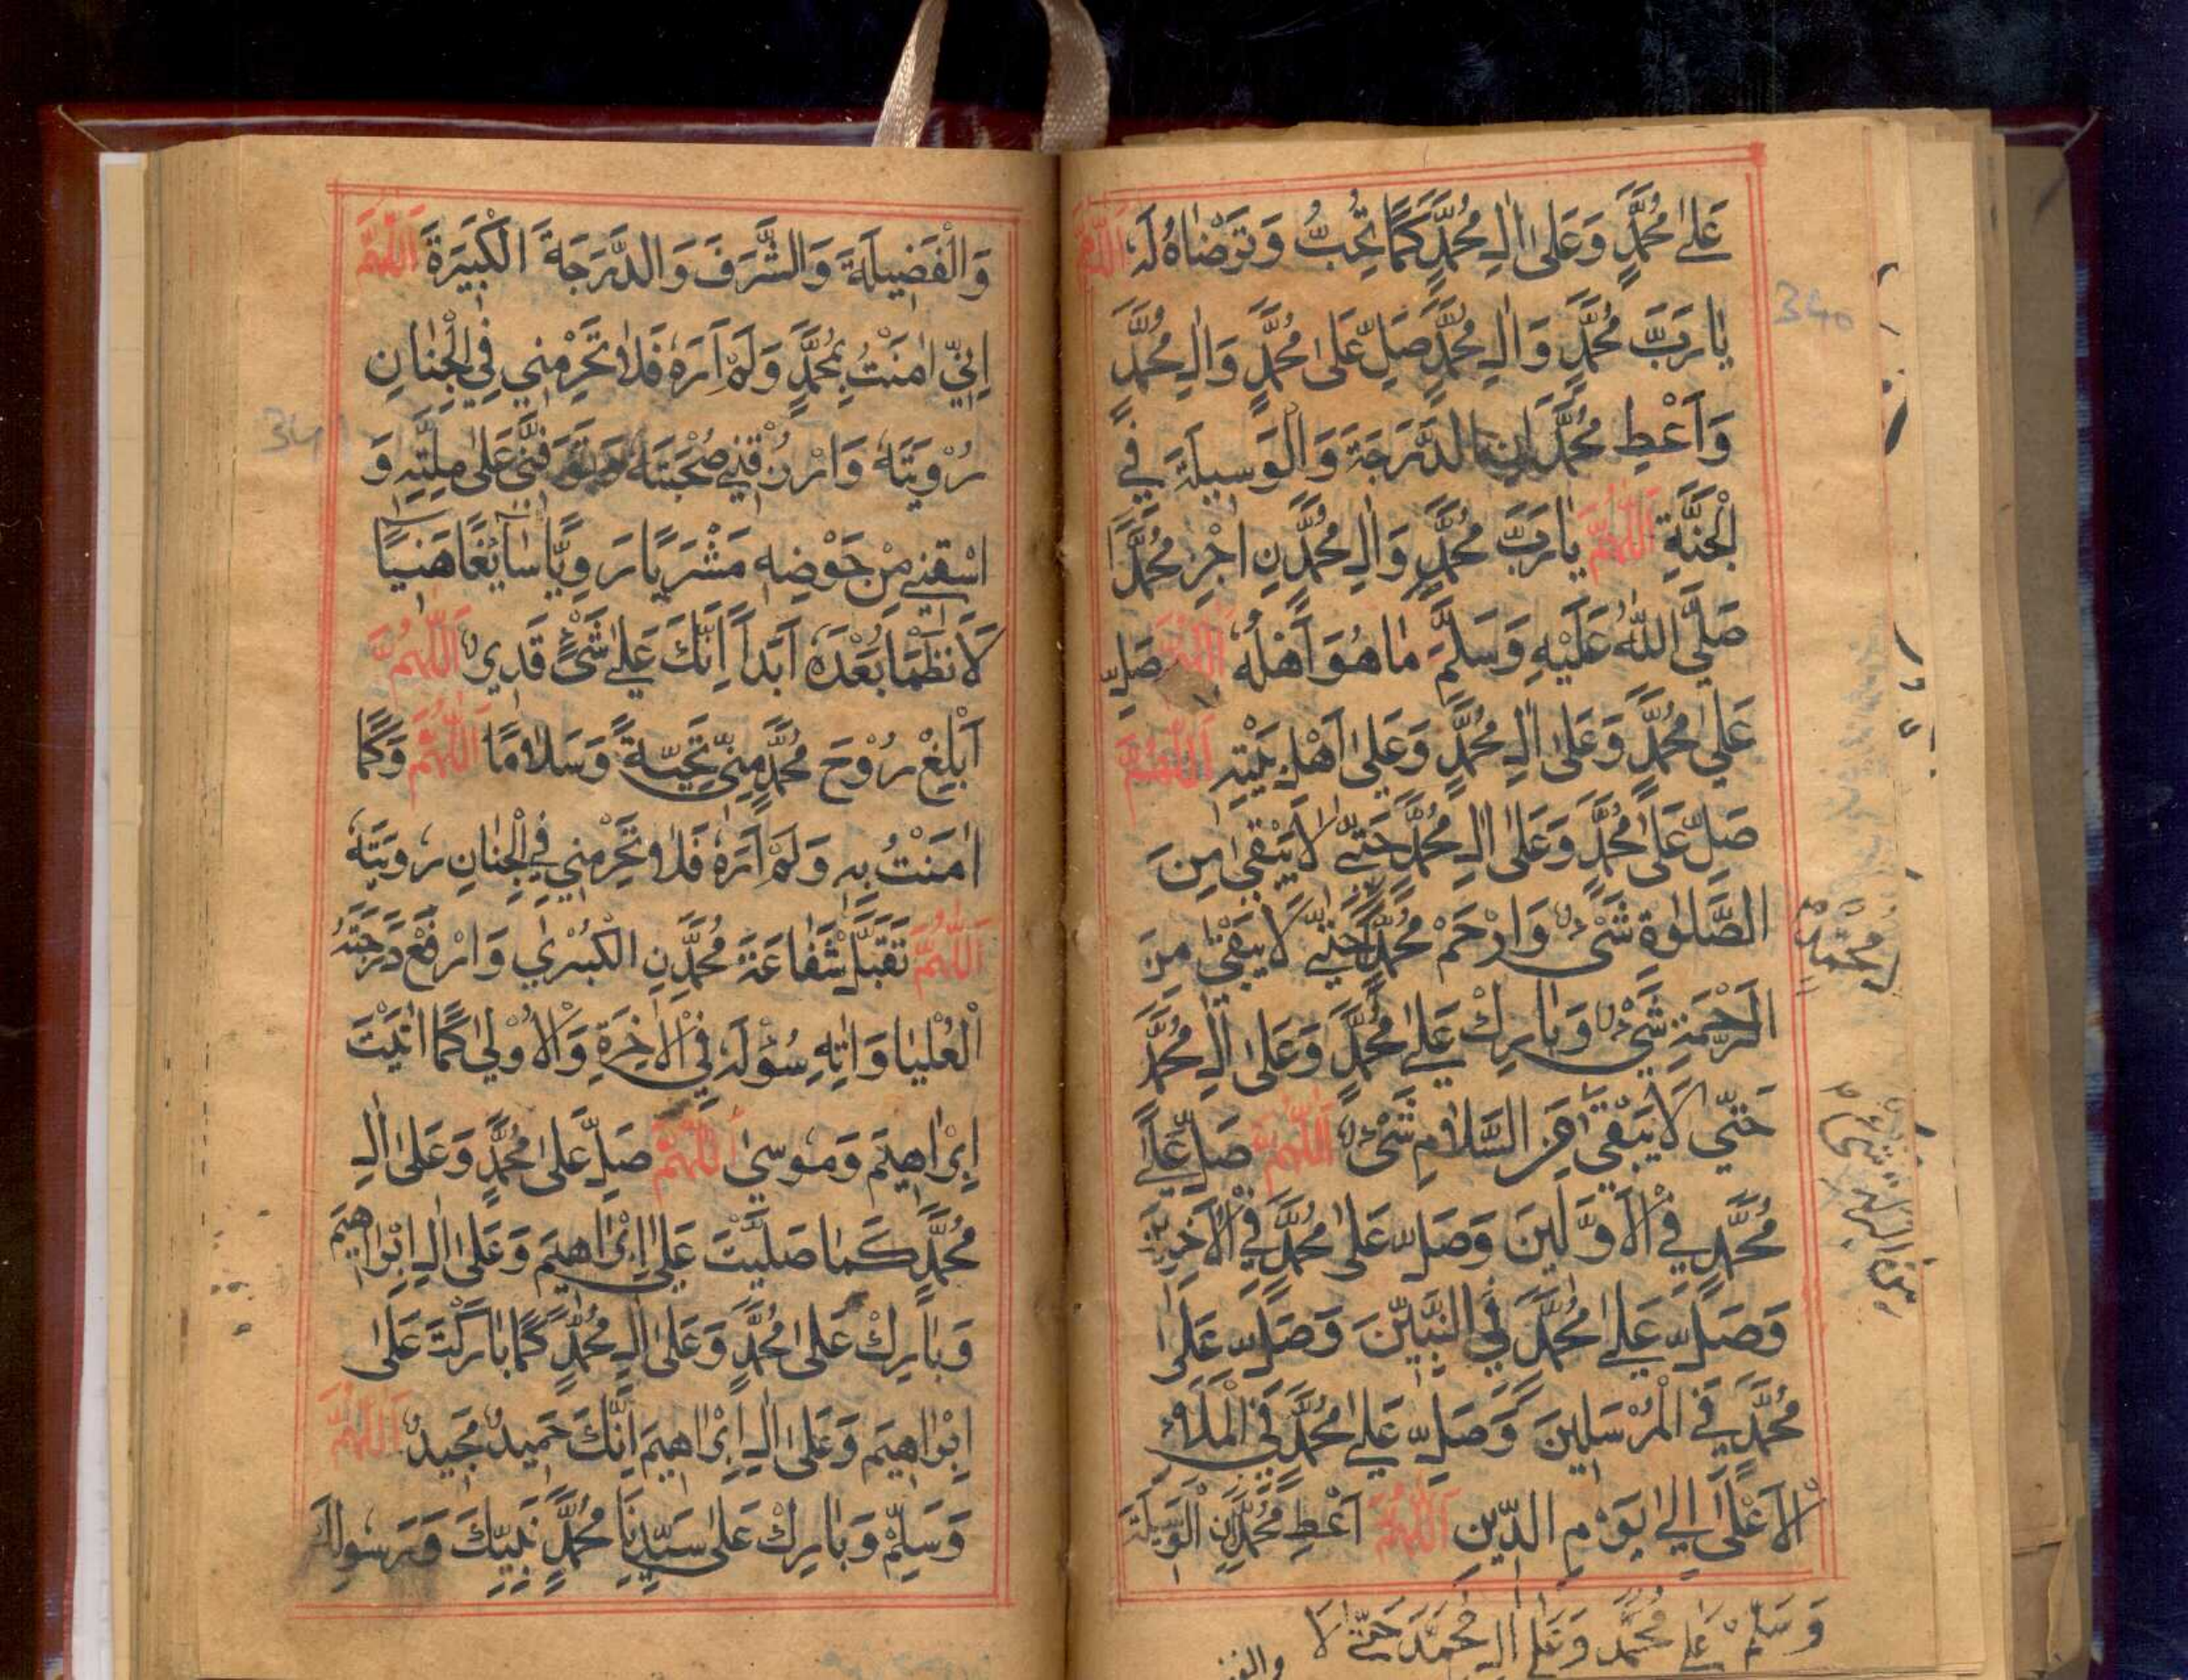 عَلٰی مُحَمَّدٍ وَعَلٰی اٰلِ مُحَمَّدٍ كَمَا تُحِبُّ وَتَرْضَاهُ لَهٗ اَللّٰهُمَّ
یَا رَبَّ مُحَمَّدٍ وَاٰلِ مُحَمَّدٍ صَلِّ عَلٰی مُحَمَّدٍ وَاٰلِ مُحَمَّدٍ
وَاَعْطِ مُحَمَّدَانِ الدَّرَجَةَ وَالْوَسِیلَةَ فِی
الْجَنَّةِ اَللّٰهُمَّ یَا رَبَّ مُحَمَّدٍ وَاٰلِ مُحَمَّدِنِ اجْزِ مُحَمَّدًا
صَلَّی اللّٰهُ عَلَیْهِ وَسَلَّمَ مَا هُوَ اَهْلُهٗ اَللّٰهُمَّ صَلِّ
عَلٰی مُحَمَّدٍ وَعَلٰی اٰلِ مُحَمَّدٍ وَعَلٰی اَهْلِ بَیْتِهٖ اَللّٰهُمَّ
صَلِّ عَلٰی مُحَمَّدٍ وَعَلٰی اٰلِ مُحَمَّدٍ حَتّٰی لَا یَبْقٰی مِنَ
الصَّلٰوةِ شَیْءٌ وَارْحَمْ مُحَمَّدًا حَتّٰی لَا یَبْقٰی مِنَ
الرَّحْمَةِ شَیْءٌ وَبَارِكْ عَلٰی مُحَمَّدٍ وَعَلٰی اٰلِ مُحَمَّدٍ
حَتّٰی لَا یَبْقٰی مِنَ السَّلَامِ شَیْءٌ اَللّٰهُمَّ صَلِّ عَلٰی
مُحَمَّدٍ فِی الْاَوَّلِینَ وَصَلِّ عَلٰی مُحَمَّدٍ فِی الْاٰخِرِینَ
وَصَلِّ عَلٰی مُحَمَّدٍ فِی النَّبِیِّنَ وَصَلِّ عَلٰی
مُحَمَّدٍ فِی الْمُرْسَلِینَ وَصَلِّ عَلٰی مُحَمَّدٍ فِی الْمَلَاءِ
الْاَعْلٰی اِلٰی یَوْمِ الدِّینِ اَللّٰهُمَّ اَعْطِ مُحَمَّدَنِ الْوَسِیلَةَ
وَسَلِّمْ عَلٰی مُحَمَّدٍ وَعَلٰی اٰلِ مُحَمَّدٍ حَتّٰی لَا
340
محمد
وَالْفَضِیلَةَ وَالشَّرَفَ وَالدَّرَجَةَ الْكَبِیرَةَ اَللّٰهُمَّ
اِنِّی اٰمَنْتُ بِمُحَمَّدٍ وَلَمْ اَرَهٗ فَلَا تَحْرِمْنِی فِی الْجِنَانِ
رُؤْیَتَهٗ وَارْزُقْنِی صُحْبَتَهٗ وَتَوَفَّنِی عَلٰی مِلَّتِهٖ وَ
اسْقِنِی مِنْ حَوْضِهٖ مَشْرَبًا رَوِیًّا سَآئِغًا هَنِیًّا
لَا نَظْمَا بَعْدَهٗ اَبَدًا اِنَّكَ عَلٰی شَیْءٍ قَدِیرٌ اَللّٰهُمَّ
اَبْلِغْ رُوْحَ مُحَمَّدٍ مِنِّی تَحِیَّةً وَسَلَامًا اَللّٰهُمَّ وَكَمَا
اٰمَنْتُ بِهٖ وَلَمْ اَرَهٗ فَلَا تَحْرِمْنِی فِی الْجِنَانِ رُویَتَهٗ
اَللّٰهُمَّ تَقَبَّلْ شَفَاعَةَ مُحَمَّدِنِ الْكُبْرٰی وَارْفَعْ دَرَجَتَهُ
الْعُلْیَا وَاٰتِهٖ سُؤْلَهٗ فِی الْاٰخِرَةِ وَالْاُوْلٰی كَمَا اٰتَیْتَ
اِبْرَاهِیمَ وَمُوسٰی اَللّٰهُمَّ صَلِّ عَلٰی مُحَمَّدٍ وَعَلٰی اٰلِ
مُحَمَّدٍ كَمَا صَلَّیْتَ عَلٰی اِبْرَاهِیمَ وَعَلٰی اٰلِ اِبْرَاهِیمَ
وَبَارِكْ عَلٰی مُحَمَّدٍ وَعَلٰی اٰلِ مُحَمَّدٍ كَمَا بَارَكْتَ عَلٰی
اِبْرَاهِیمَ وَعَلٰی اٰلِ اِبْرَاهِیمَ اِنَّكَ حَمِیدٌ مَجِیدٌ اَللّٰهُمَّ
وَسَلِّمْ وَبَارِكْ عَلٰی سَیِّدِنَا مُحَمَّدٍ نَبِیِّكَ وَرَسُولِكَ